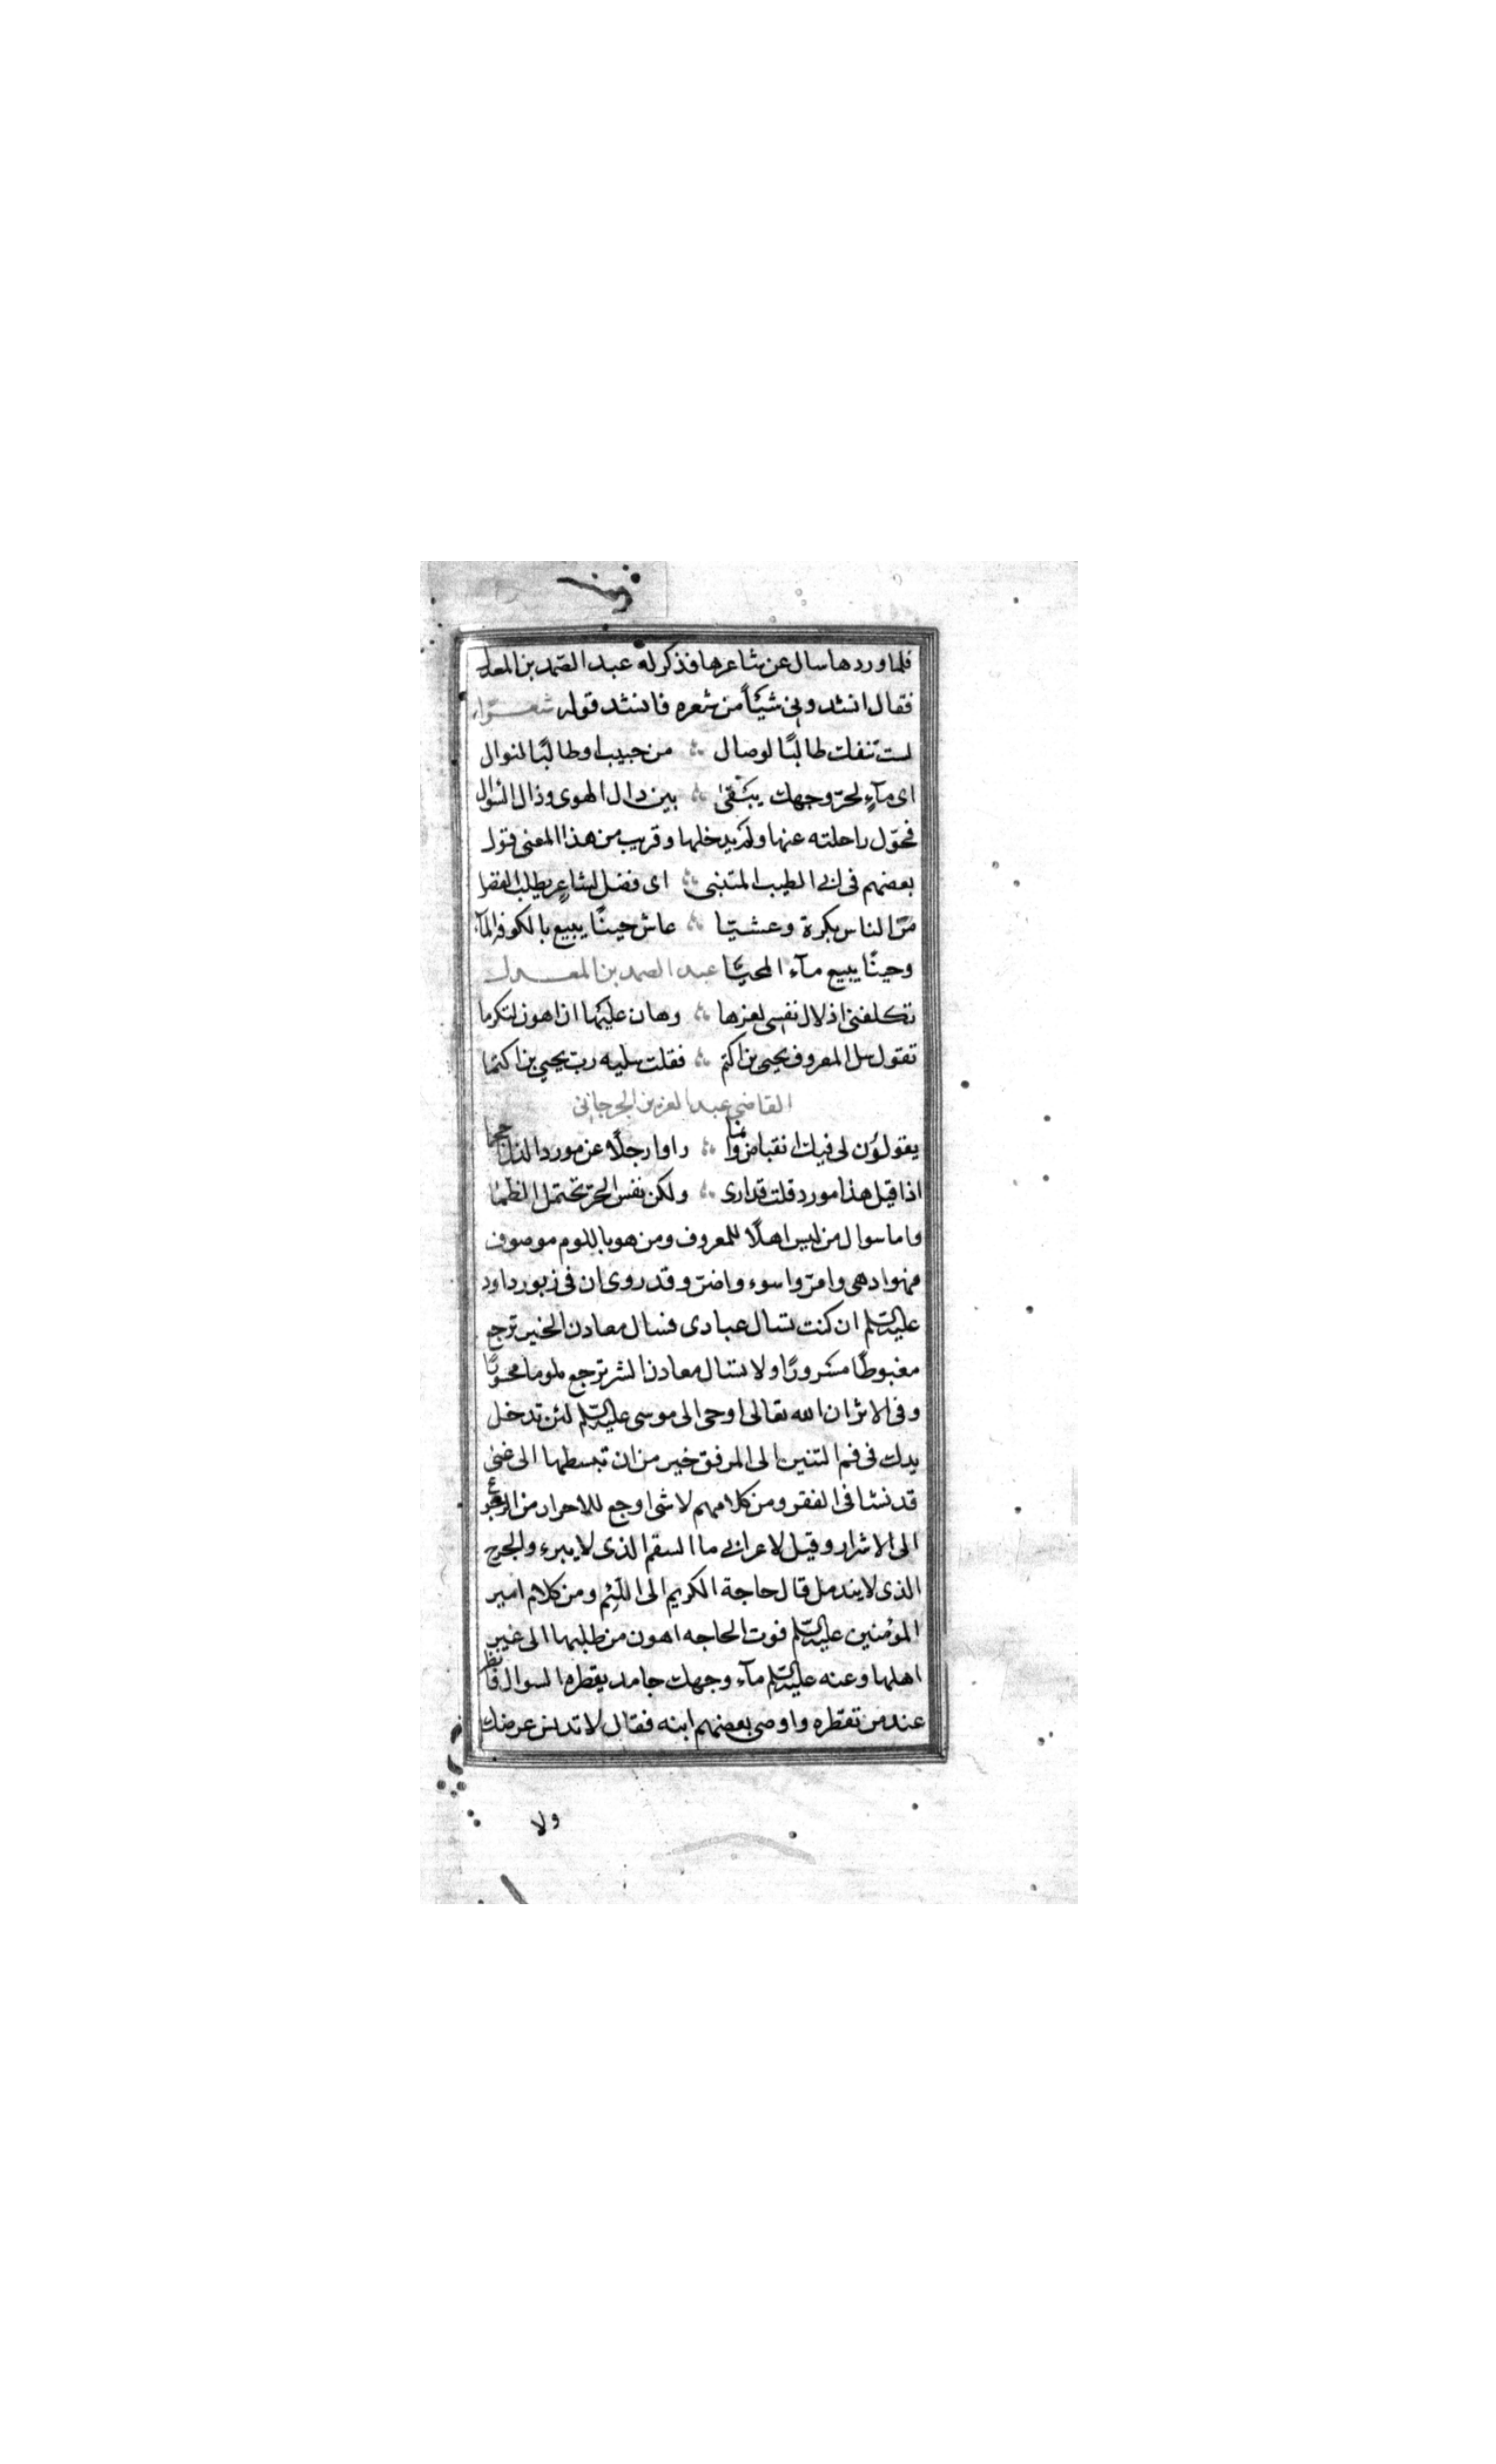 فلما وردها سال عن شاعرها فذكر له عبد الصمد بن المعدل
فقال انشدونى شيئاً من شعره فانشد قوله شعرا
لست تنفك طالبًا لوصال من حبيب او طالبًا لنوال
اى مآءٍ لحرّ وجهك يبقى بين دال الهوى وذال السوال
فحوّل راحلته عنها ولم يدخلها وقريب من هذا المعنى قول
بعضهم فى ابى الطيب المتنبى اى فضل لشاعرٍ يطلب الفضل
من الناس بكرة وعشيّا عاش حينًا يبيع بالكوفه المآء
وحينًا يبيع مآء المحيّا عبد الصمد بن المعدل
تكلفنى اذلال نفسى لعزها وهان عليها ان اهون لتكرما
تقول سل المعروف يحيى بن اكثم فقلت سليه رب يحيى بن اكثما
القاضى عبد العزيز الجرجانى
يقولون لى فيك انقباض وانما راوا رجلاً عن مورد الذل احجما
اذا قيل هذا مورد قلت قد ارى ولكن نفس الحرّ تحتمل الظما
واما سوال من ليس اهلاً للمعروف ومن هو باللوم موصوف
فهو ادهى وامرّ واسوء واضرّ وقد روى ان فى زبور داود
عليه السلم ان كنت تسال عبادى فسال معادن الخير ترجع
مغبوطًا مسرورًا ولا تسال معادن الشر ترجع ملوما محسورًا
وفى الاثر ان الله تعالى اوحى الى موسى عليه السلم لئن تدخل
يدك فى فم التنين الى المرفق خير من ان تبسطها الى غنى
قد نشا فى الفقر ومن كلامهم لا شى اوجع للاحرار من الرجوع
الى الاشرار وقيل لاعرابى ما السقم الذى لا يبرء والجرح
الذى لا يندمل قال حاجة الكريم الى اللئيم ومن كلام امير
المؤمنين عليه السلم فوت الحاجه اهون من طلبها الى غير
اهلها وعنه عليه السلم مآء وجهك جامد يقطره السوال فانظر
عند من تقطره واوصى بعضهم ابنه فقال لا تدنس عرضك
ولا